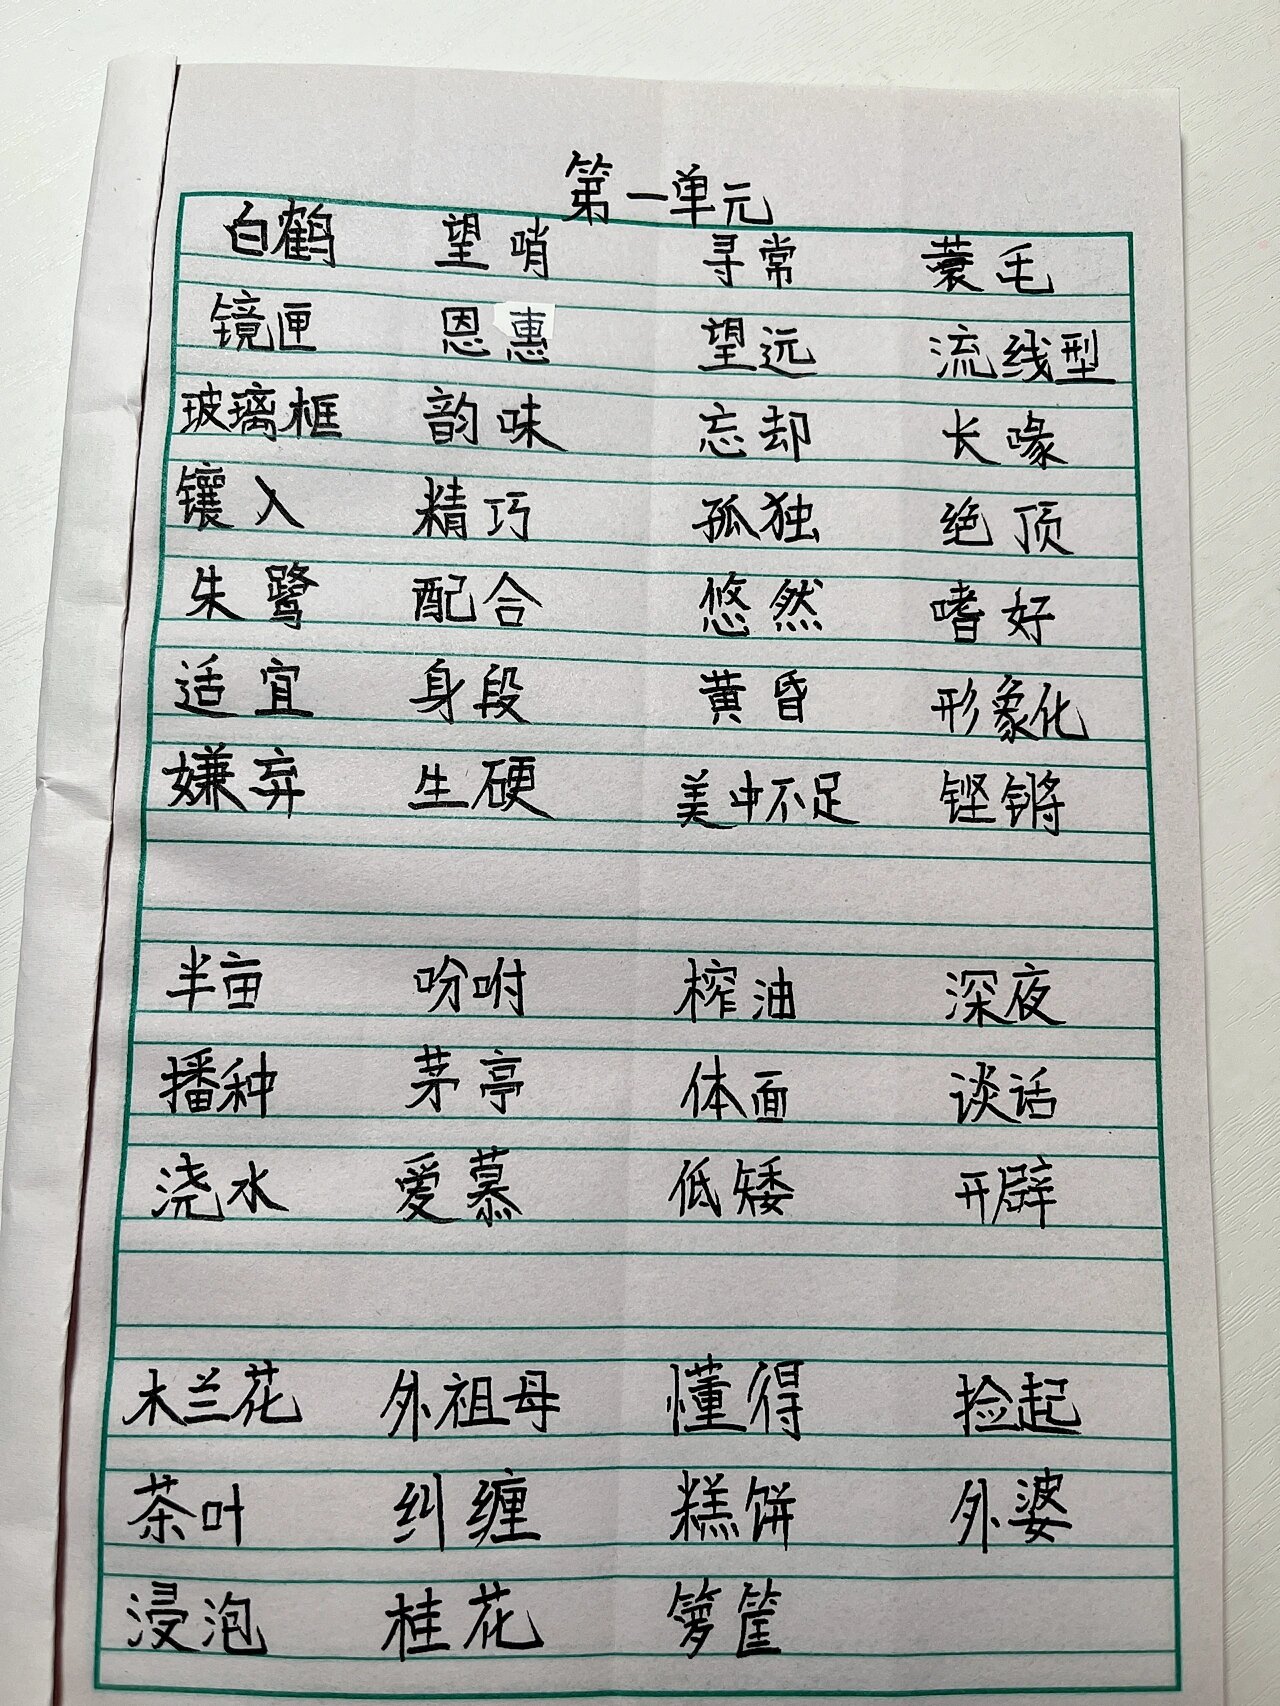 第一单元
白鹤 望哨 寻常 蓑毛
镜匣 恩惠 望远 流线型
玻璃框 韵味 忘却 长喙
镶入 精巧 孤独 绝顶
朱鹭 配合 悠然 嗜好
适宜 身段 黄昏 形象化
嫌弃 生硬 美中不足 铿锵
半亩 吩咐 榨油 深夜
播种 茅亭 体面 谈话
浇水 爱慕 低矮 开辟
木兰花 外祖母 懂得 捡起
茶叶 纠缠 糕饼 外婆
浸泡 桂花 箩筐